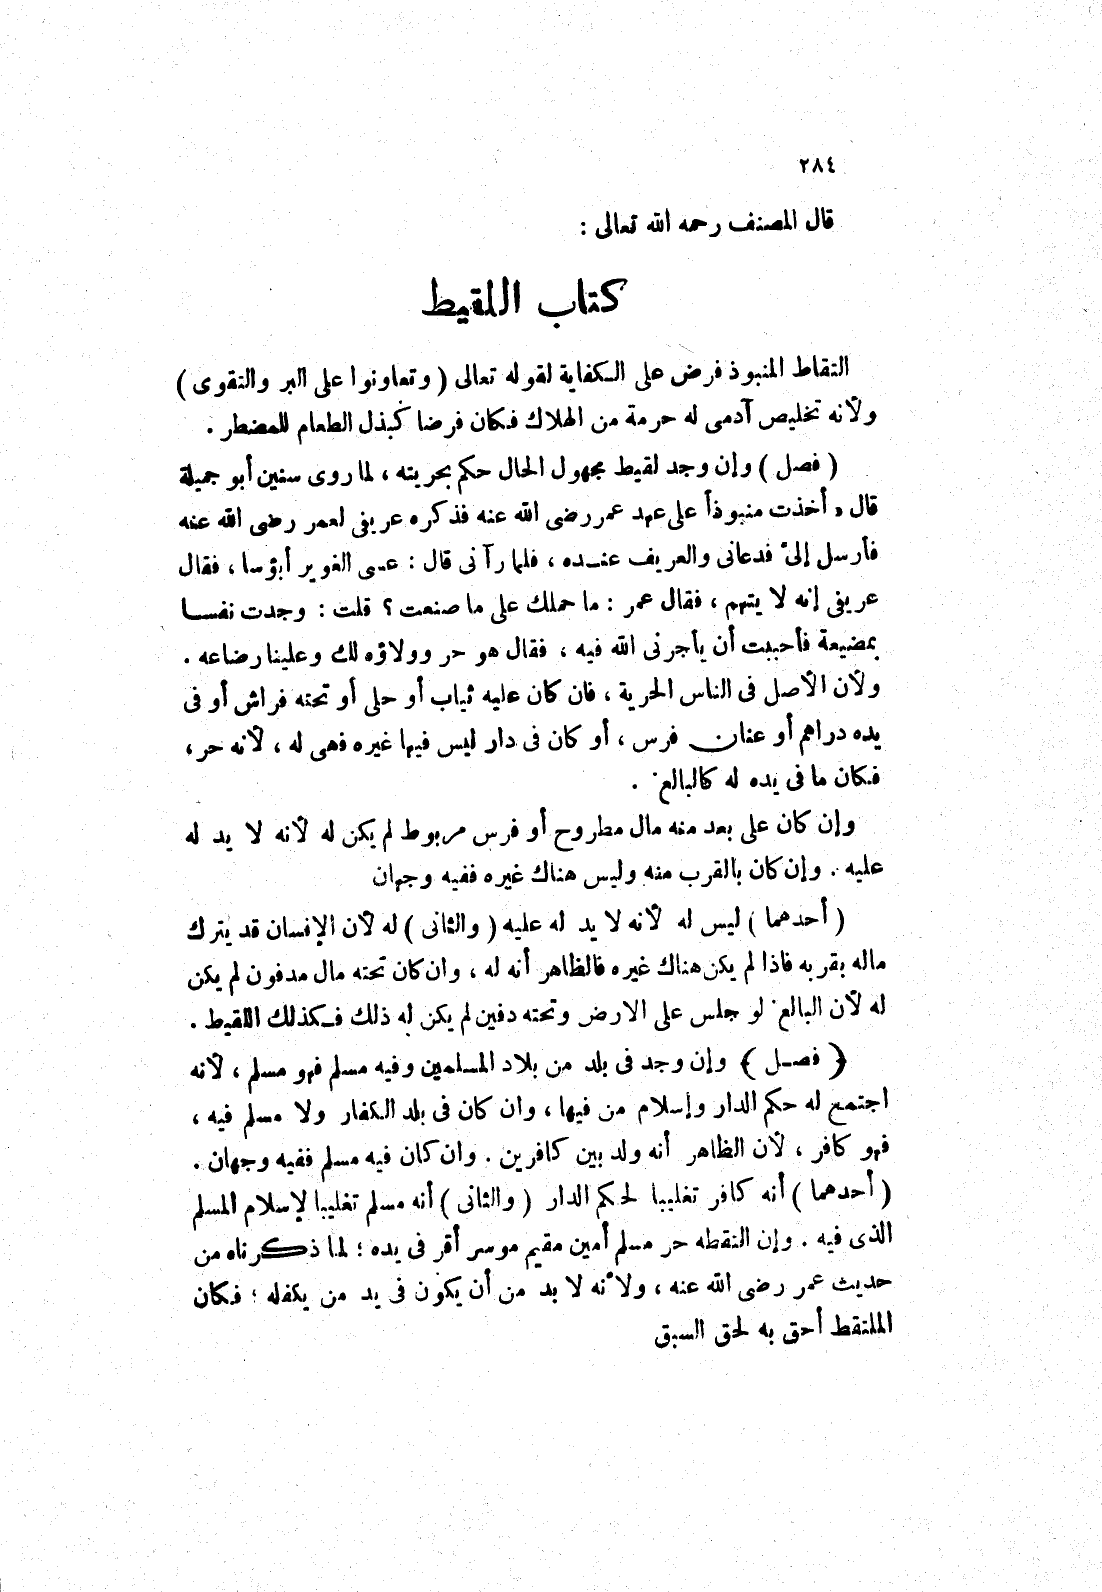 ٢٨٤
قال المصنف رحمه الله تعالى :
كتاب اللقيط
التقاط المنبوذ فرض على الكفاية لقوله تعالى ( وتعاونوا على البر والتقوى )
ولأنه تخليص آدمى له حرمة من الهلاك فكان فرضا كبذل الطعام للمضطر .
( فصل ) وإن وجد لقيط مجهول الحال حكم بحريته ، لما روى سنين أبو جميلة
قال « أخذت منبوذاً على عهد عمر رضى الله عنه فذكره عريفى لعمر رضى الله عنه
فأرسل إلىّ فدعانى والعريف عنده ، فلما رآنى قال : عسى الغوير أبؤسا ، فقال
عريفى إنه لا يتهم ، فقال عمر : ما حملك على ما صنعت ؟ قلت : وجدت نفسا
بمضيعة فأحببت أن يأجرنى الله فيه ، فقال هو حر وولاؤه لك وعلينا رضاعه .
ولأن الأصل فى الناس الحرية ، فان كان عليه ثياب أو حلى أو تحته فراش أو فى
يده دراهم أو عنان فرس ، أو كان فى دار ليس فيها غيره فهى له ، لأنه حر ،
فكان ما فى يده له كالبالغ .
وإن كان على بعد منه مال مطروح أو فرس مربوط لم يكن له لأنه لا يد له
عليه . وإن كان بالقرب منه وليس هناك غيره ففيه وجهان
( أحدهما ) ليس له لأنه لا يد له عليه ( والثانى ) له لأن الإنسان قد يترك
ماله بقربه فاذا لم يكن هناك غيره فالظاهر أنه له ، وان كان تحته مال مدفون لم يكن
له لأن البالغ لو جلس على الارض وتحته دفين لم يكن له ذلك فكذلك اللقيط .
﴿ فصل ﴾ وإن وجد فى بلد من بلاد المسلمين وفيه مسلم فهو مسلم ، لأنه
اجتمع له حكم الدار وإسلام من فيها ، وان كان فى بلد الكفار ولا مسلم فيه ،
فهو كافر ، لأن الظاهر أنه ولد بين كافرين . وان كان فيه مسلم ففيه وجهان .
( أحدهما ) أنه كافر تغليبا لحكم الدار ( والثانى ) أنه مسلم تغليبا لإسلام المسلم
الذى فيه . وإن التقطه حر مسلم أمين مقيم موسر أقر فى يده ؛ لما ذكرناه من
حديث عمر رضى الله عنه ، ولأنه لا بد من أن يكون فى يد من يكفله ؛ فكان
الملتقط أحق به لحق السبق